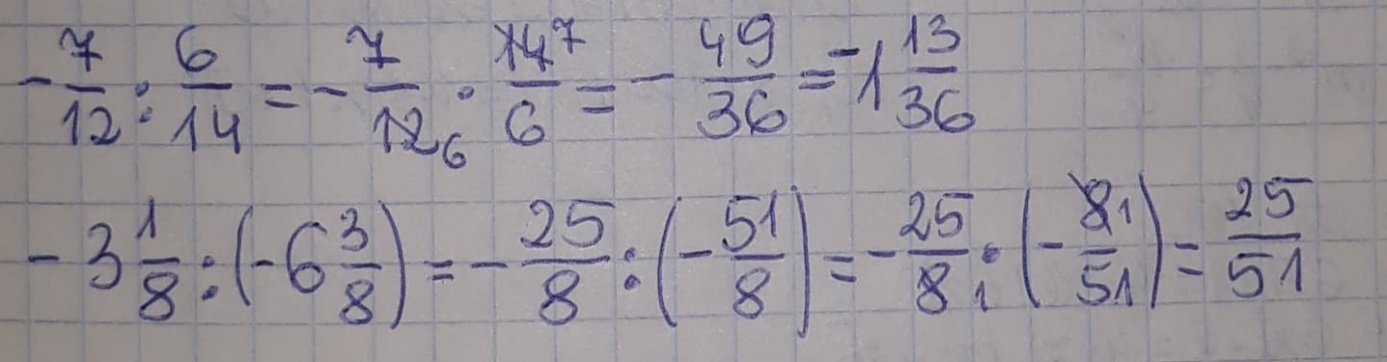 -7/12 : 6/14 = -7/12 6 · 14 7/6 = -49/36 = -1 13/36
-3 1/8 : (-6 3/8) = -25/8 : (-51/8) = -25/8 1 · (-8 1/51) = 25/51